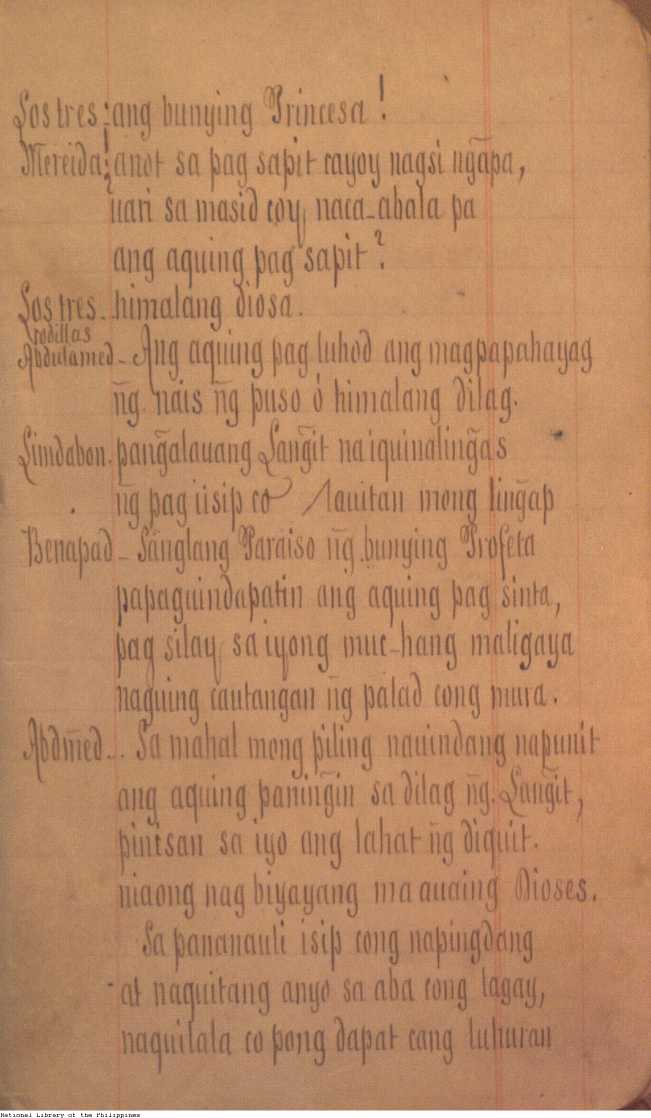 Los tres: ang bunying Princesa!
Mereida: ¿anot sa pag sapit cayoy nagsi ng̃apa,
uari sa masid coy, naca-abala pa
ang aquing pag sapit?
Los tres- himalang diosa.
rodillas
Abdulamed- Ang aquing pag luhod ang magpapahayag
n̄g nais n̄g puso ó himalang dilag.
Limdabon. pang̃alauang Lang̃it na iquinaling̃as
n̄g pag iisip co lauitan mong ling̃ap
Benapad- Sanglang Paraiso n̄g bunying Profeta
papaguindapatin ang aquing pag sinta,
pag silay sa iyong muc-hang maligaya
naguing cautangan n̄g palad cong mura.
Abdm̄ed... Sa mahal mong piling nauindang napunit
ang aquing paning̃in sa dilag n̄g Lang̃it,
pintsan sa iyo ang lahat n̄g diquit.
niaong nag biyayang maauaing Dioses.
Sa pananauli isip cong napingdang
at naquitang anyo sa aba cong lagay,
naquilala co pong dapat cang luhuran
National Library of the Philippines